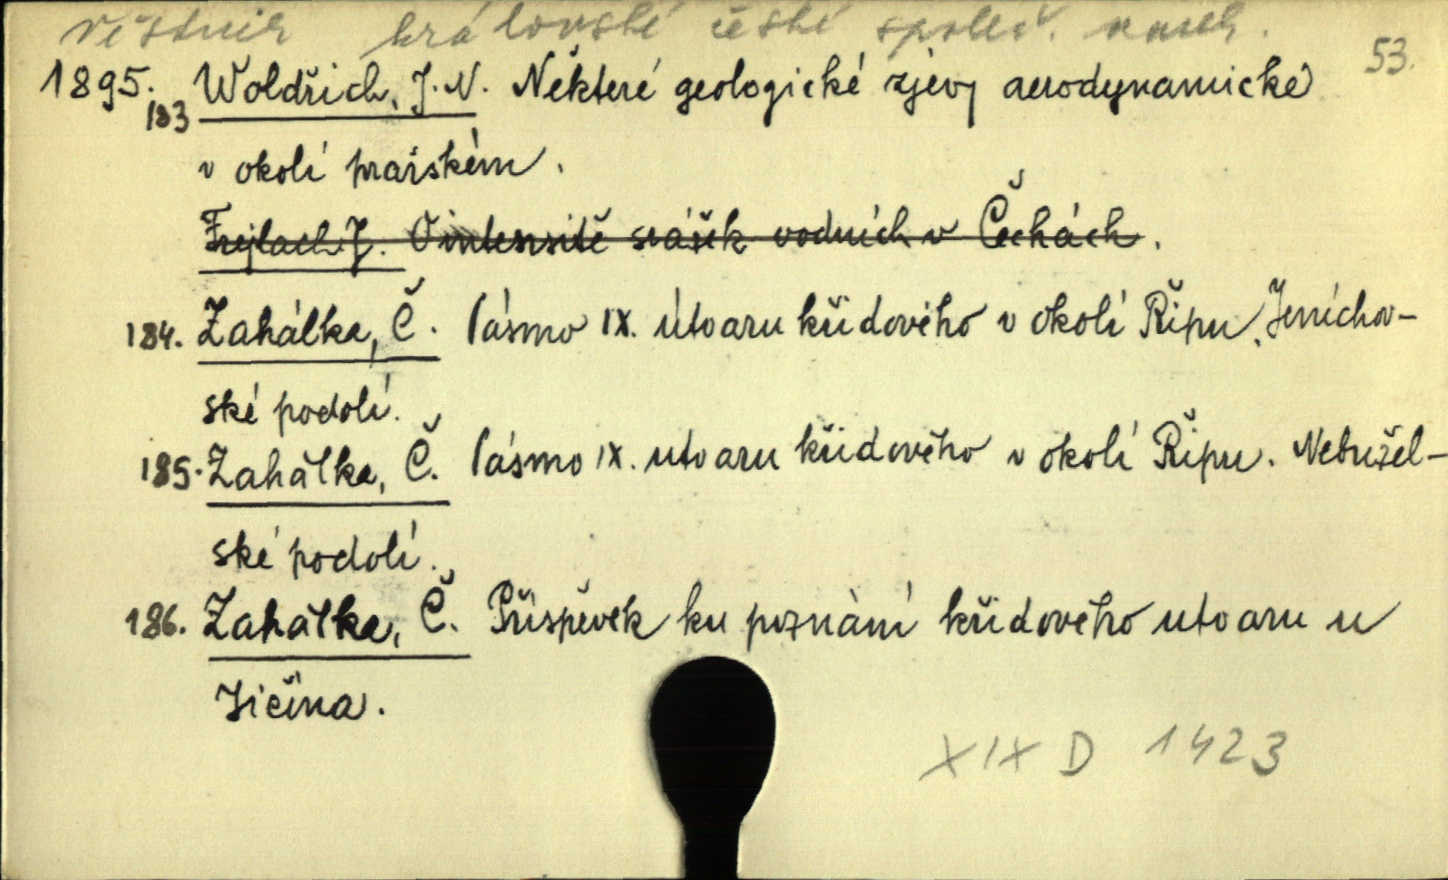 Věstník královské české společ. nauk.
53.
1895. Woldřich, J. N. Některé geologické zjevy aerodynamické
183
v okolí pražském.
Frejlach J. O intensitě srážek vodních v Čechách.
184. Zahálka, Č. Pásmo IX. útvaru křídového v okolí Řípu. Jenichov-
ské podolí.
185. Zahálka, Č. Pásmo IX. utvaru křídového v okolí Řipu. Nebužel-
ské podolí.
186. Zahálka, Č. Příspěvek ku poznání křídového utvaru u
Jičína.
XIX D 1423